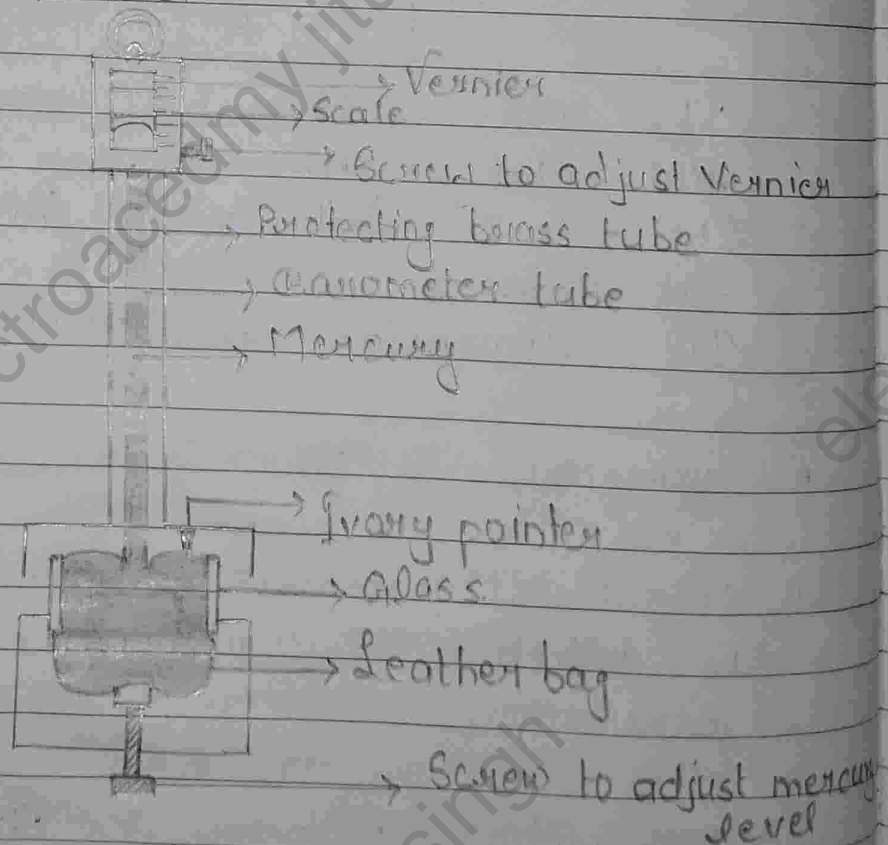 Vernier
Scale
Screw to adjust Vernier
Protecting brass tube
Manometer tube
Mercury
Ivory pointer
Glass
Leather bag
Screw to adjust mercury
level
electroacedmy jit
ele
singh